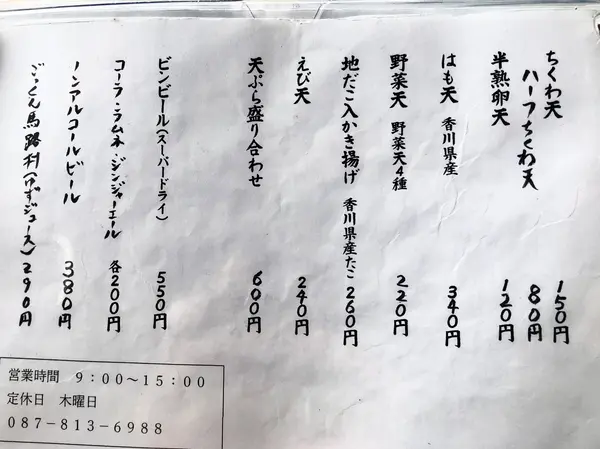 ちくわ天 150円
ハーフちくわ天 80円
半熟卵天 120円
はも天 香川県産 340円
野菜天 野菜天4種 220円
地だこ入かき揚げ 香川県産たこ 260円
えび天 240円
天ぷら盛り合わせ 600円
ビンビール(スーパードライ) 550円
コーラ・ラムネ・ジンジャーエール 各200円
ノンアルコールビール 380円
ごっくん馬路村(ゆずジュース) 290円
営業時間 9:00〜15:00
定休日 木曜日
087-813-6988